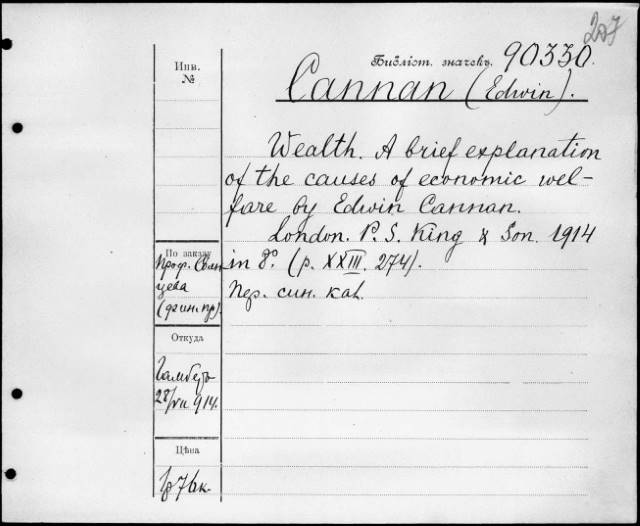 227
Библіот. значекъ. 90330.
Инв.
№
Cannan (Edwin).
Wealth. A brief explanation
of the causes of economic wel-
fare by Edwin Cannan.
London. P. S. King & Son. 1914
in 8º. (p. XXIII. 274).
Пер. син. кал.
По заказу
Проф.
цева
(фин. пр).
Откуда
28/VII 914.
Цѣна
1р 76к.